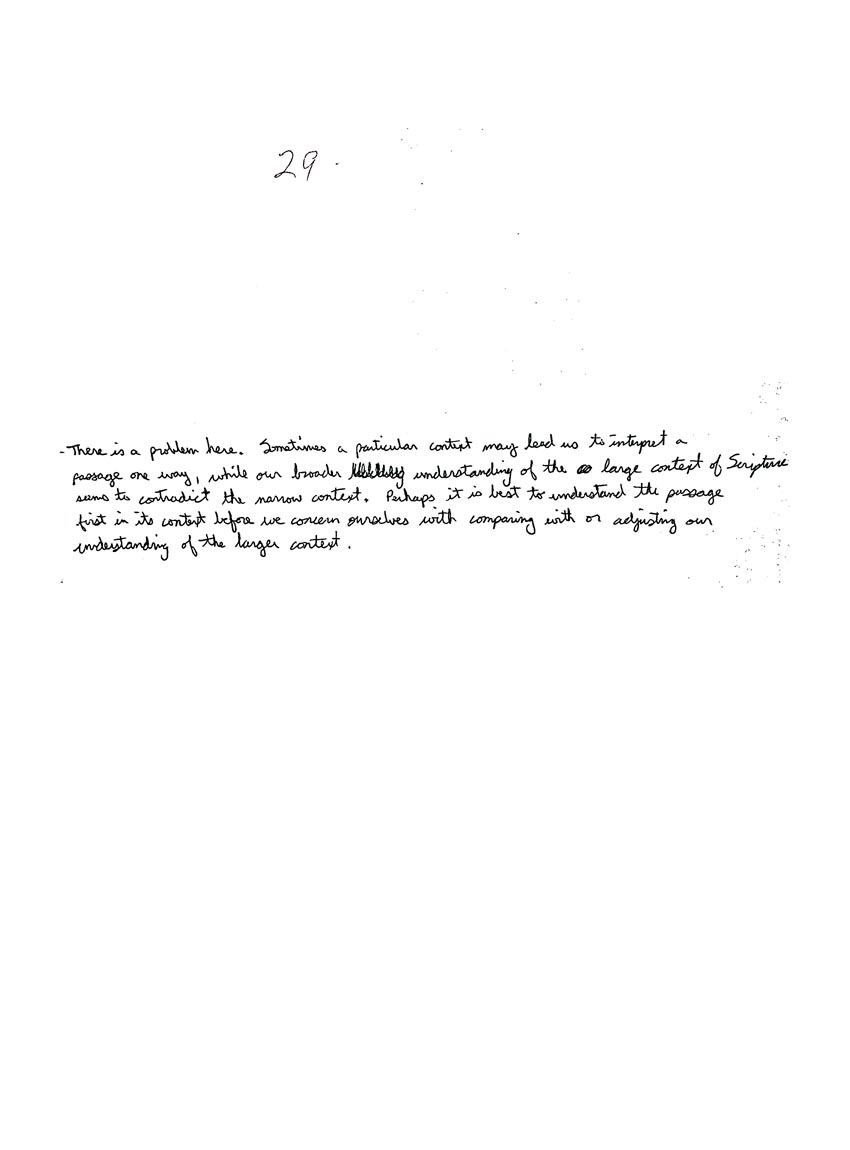 29.
- There is a problem here. Sometimes a particular context may lead us to interpret a
passage one way, while our broader understanding of the large context of Scripture
seems to contradict the narrow context. Perhaps it is best to understand the passage
first in its context before we concern ourselves with comparing with or adjusting our
understanding of the larger context.